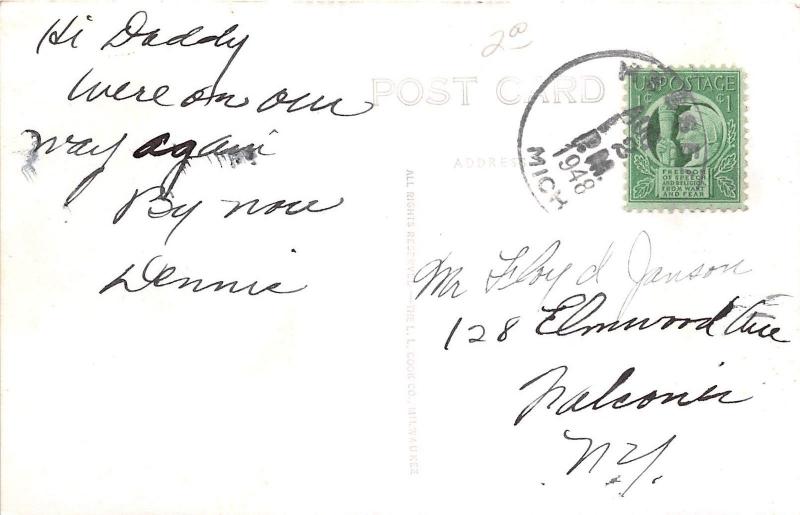 Hi Daddy
Were on our
way again
By now
Dennis
20
POST CARD
ADDRESS
ALL RIGHTS RESERVED — THE L. L. COOK CO., MILWAUKEE
P.M.
1948
MICH
U.S. POSTAGE
1¢ ¢1
FREEDOM
OF SPEECH
AND RELIGION,
FROM WANT
AND FEAR
Mr Floyd Janson
128 Elmwood Ave
Falconer
N.Y.